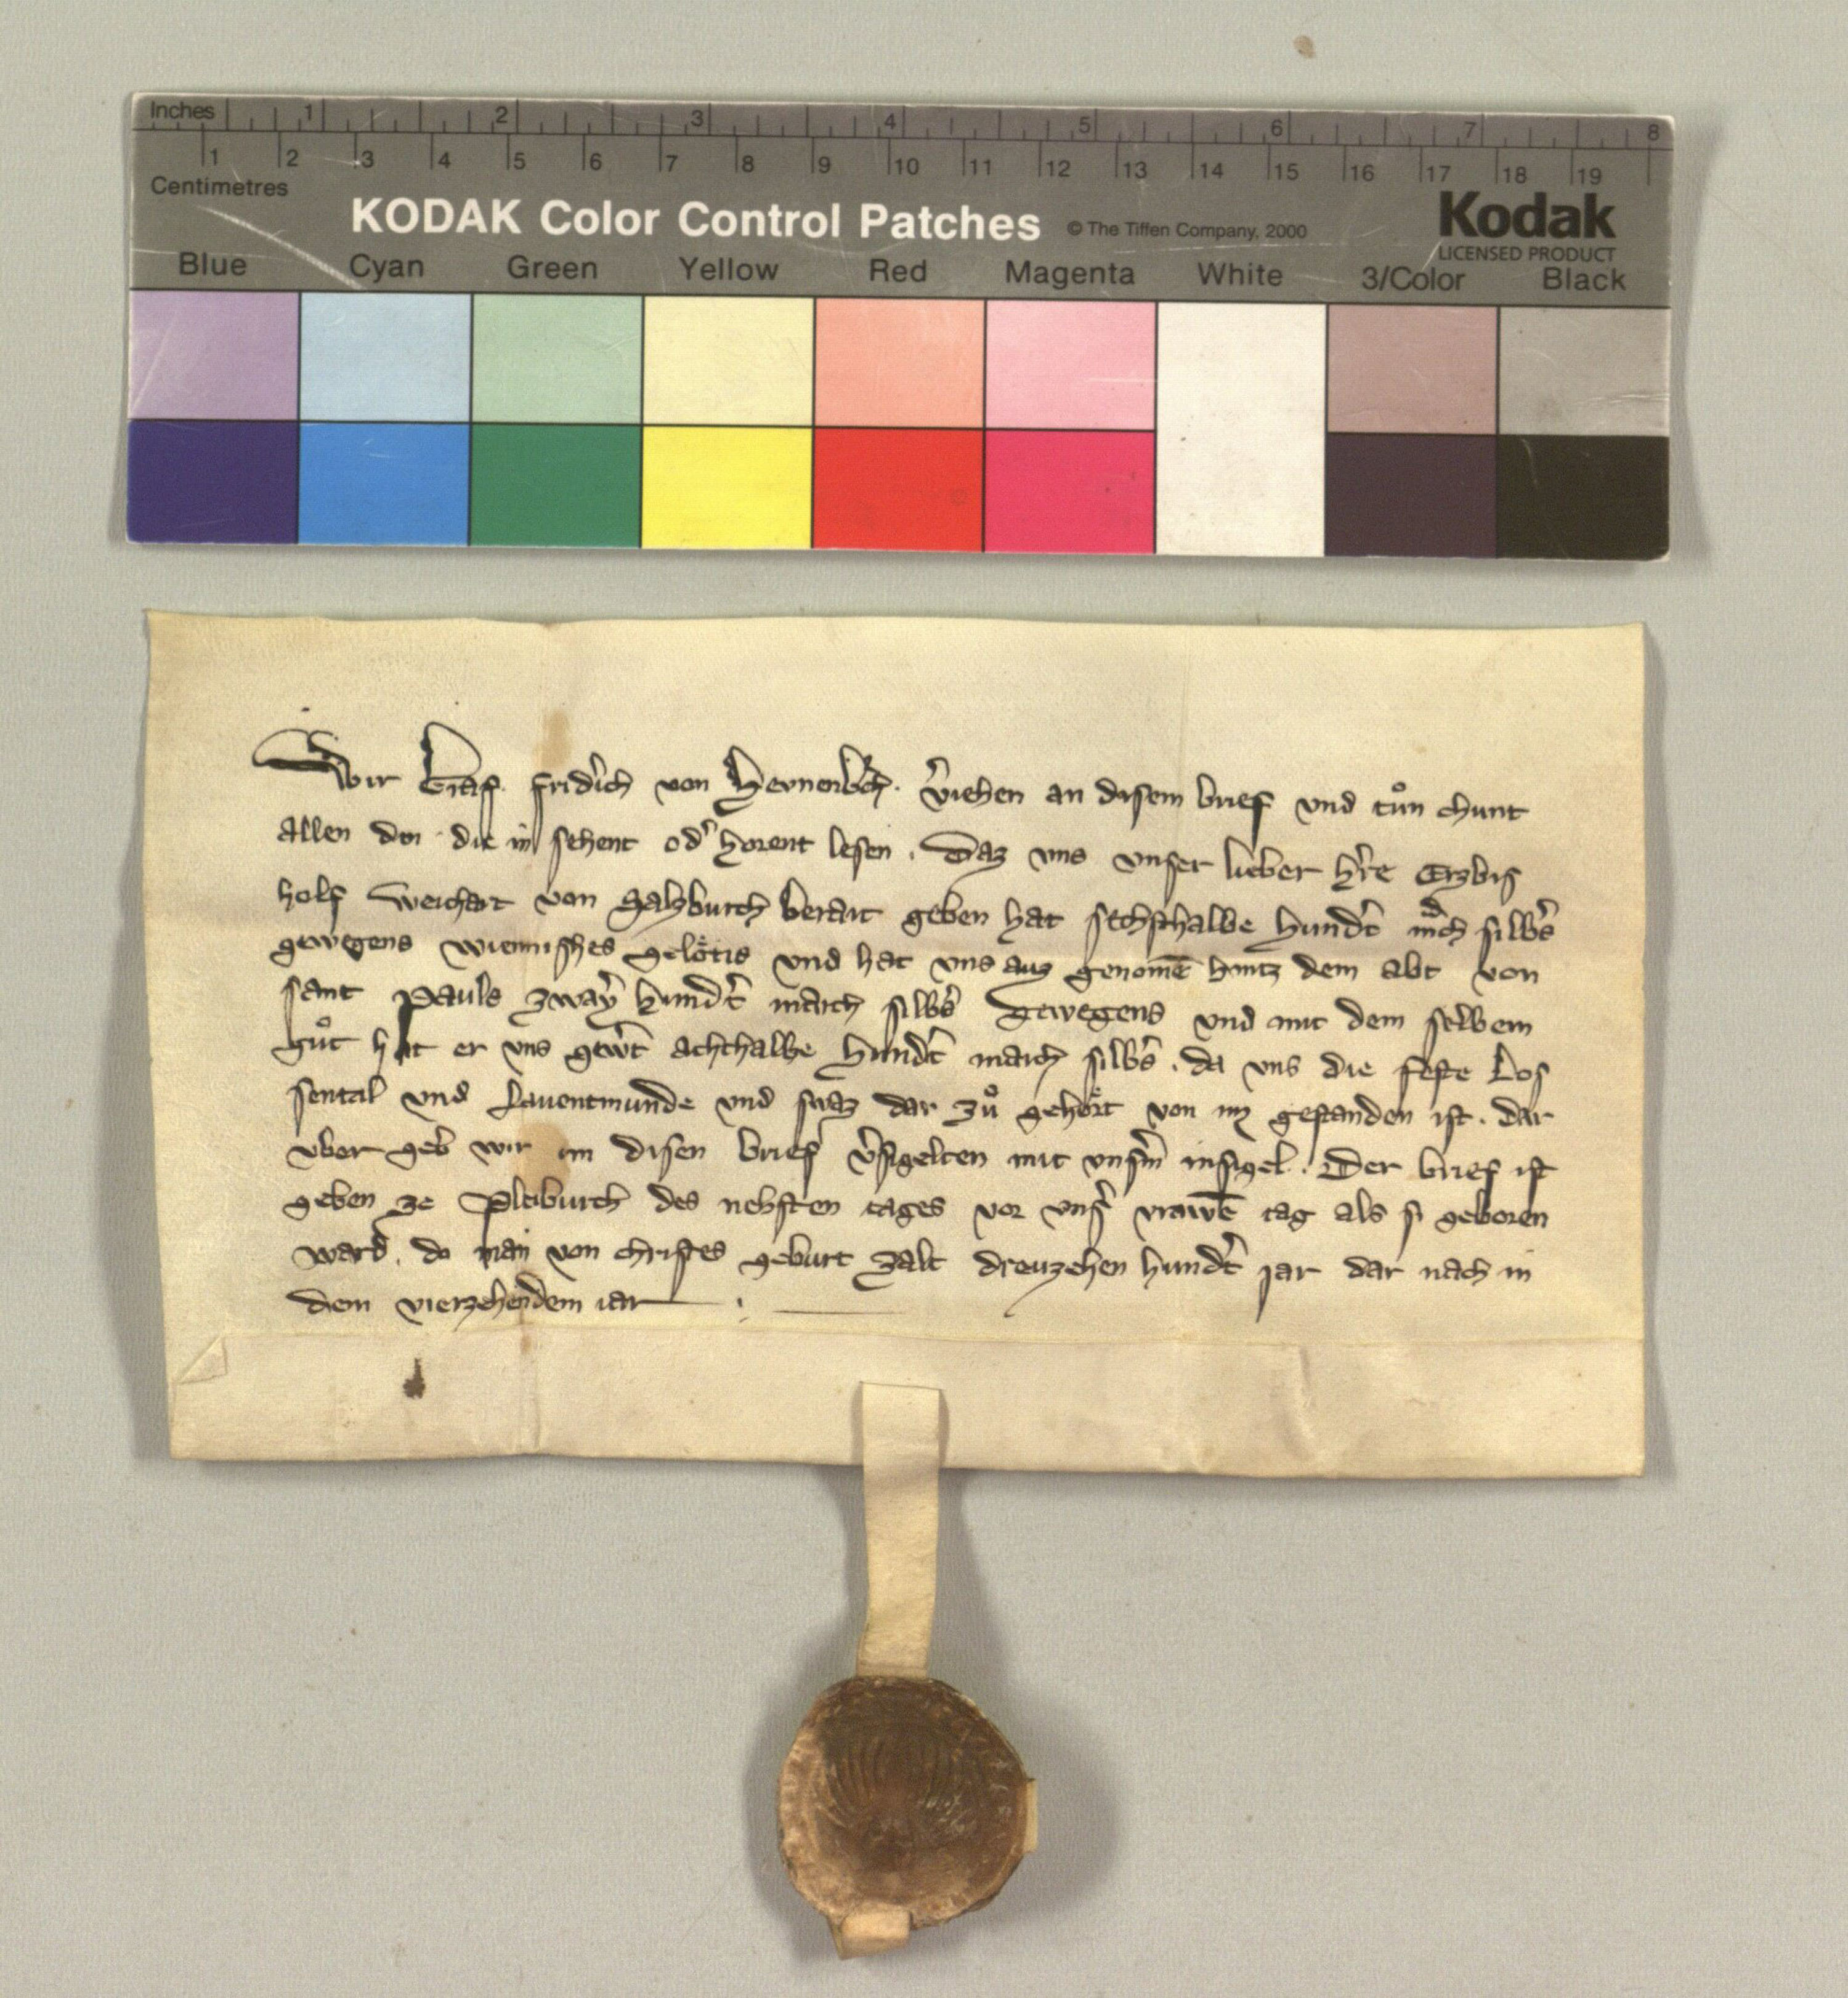 Inches 1 2 3 4 5 6 7 8
1 2 3 4 5 6 7 8 9 10 11 12 13 14 15 16 17 18 19
Centimetres
KODAK Color Control Patches © The Tiffen Company, 2000 Kodak
LICENSED PRODUCT
Blue Cyan Green Yellow Red Magenta White 3/Color Black
Wir Graf fridͤich von v̓iehen an disem brief vnd tuͦn chunt
allen den die in sehent od̓ horent lesen . Daz vns vnser lieber hr̓e Erzbis
holf Weichart von Salzburch berait geben hat sechsthalbe hundt̓ silbs̓
gewegens wiennishes geloͤtis vnd hat vns auz genomē hintz dem abt von
sant Pauls zway hundt̓ march silbs̓ gewegens vnd mit dem selbem
guͦt hat er vns gewt̓ achthalbe hundt̓ march silbs̓ . da vns die feste Los
sental vnd Lauentmunde vnd swaz dar zuͦ gehoͤrt von im gestanden ist . dar
vber geb wir im disen brief v̓sigelten mit vnsm̓ insigel . Der brief ist
geben ze Pleiburch des nehsten tages vor vns̓ vrawē tag als si geboren
ward . do man von christes geburt zalt dreuzehen hundt̓ jar dar nach in
dem vierzehendem iar